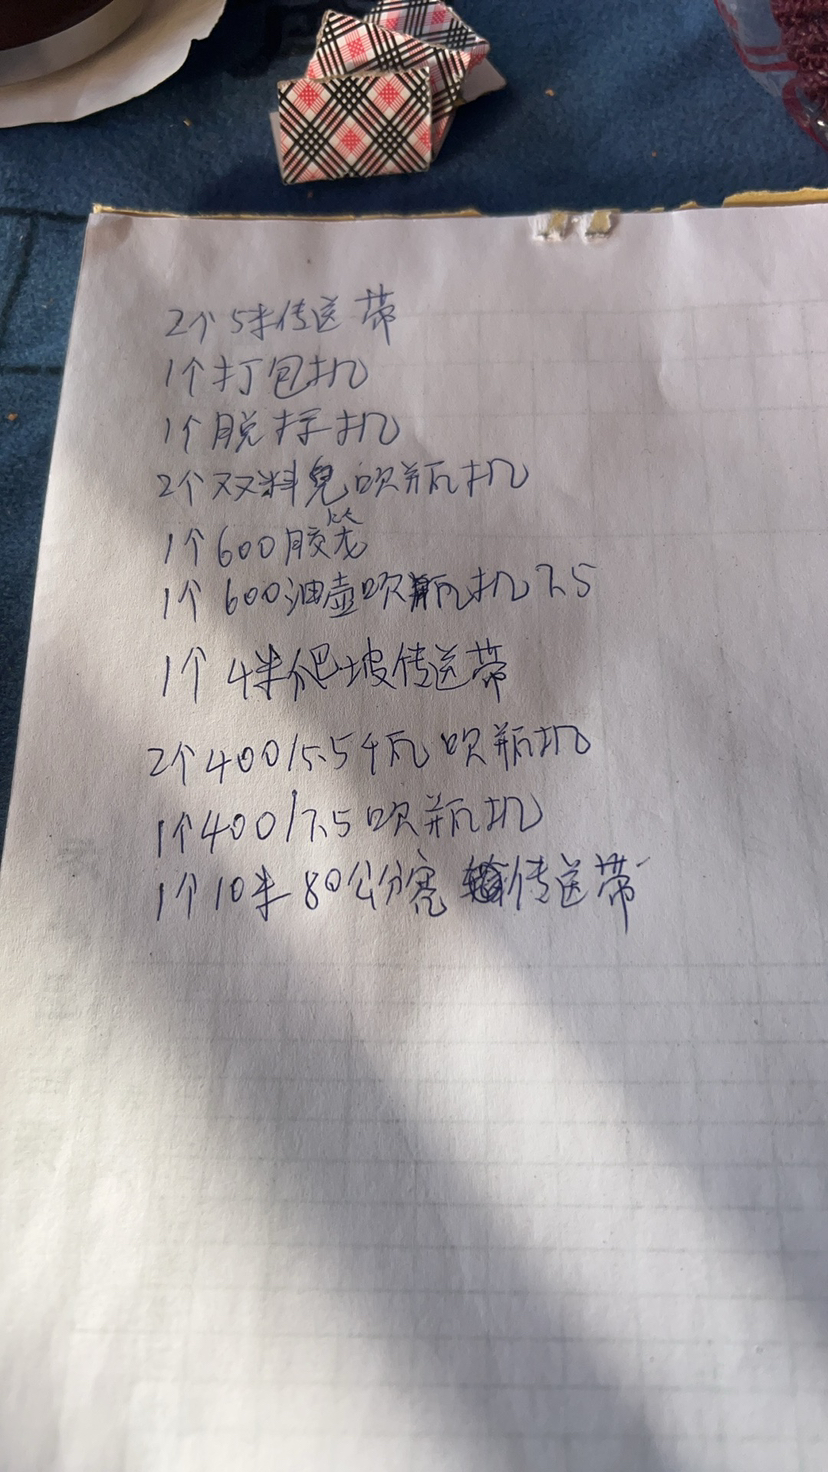 2个5米传送带
1个打包机
1个脱标机
2个双料 吹瓶机
1个600胶笼
1个600油壶吹瓶机7.5
1个4米爬坡传送带
2个400/5.5千瓦吹瓶机
1个400/7.5吹瓶机
1个10米80公分宽 传送带